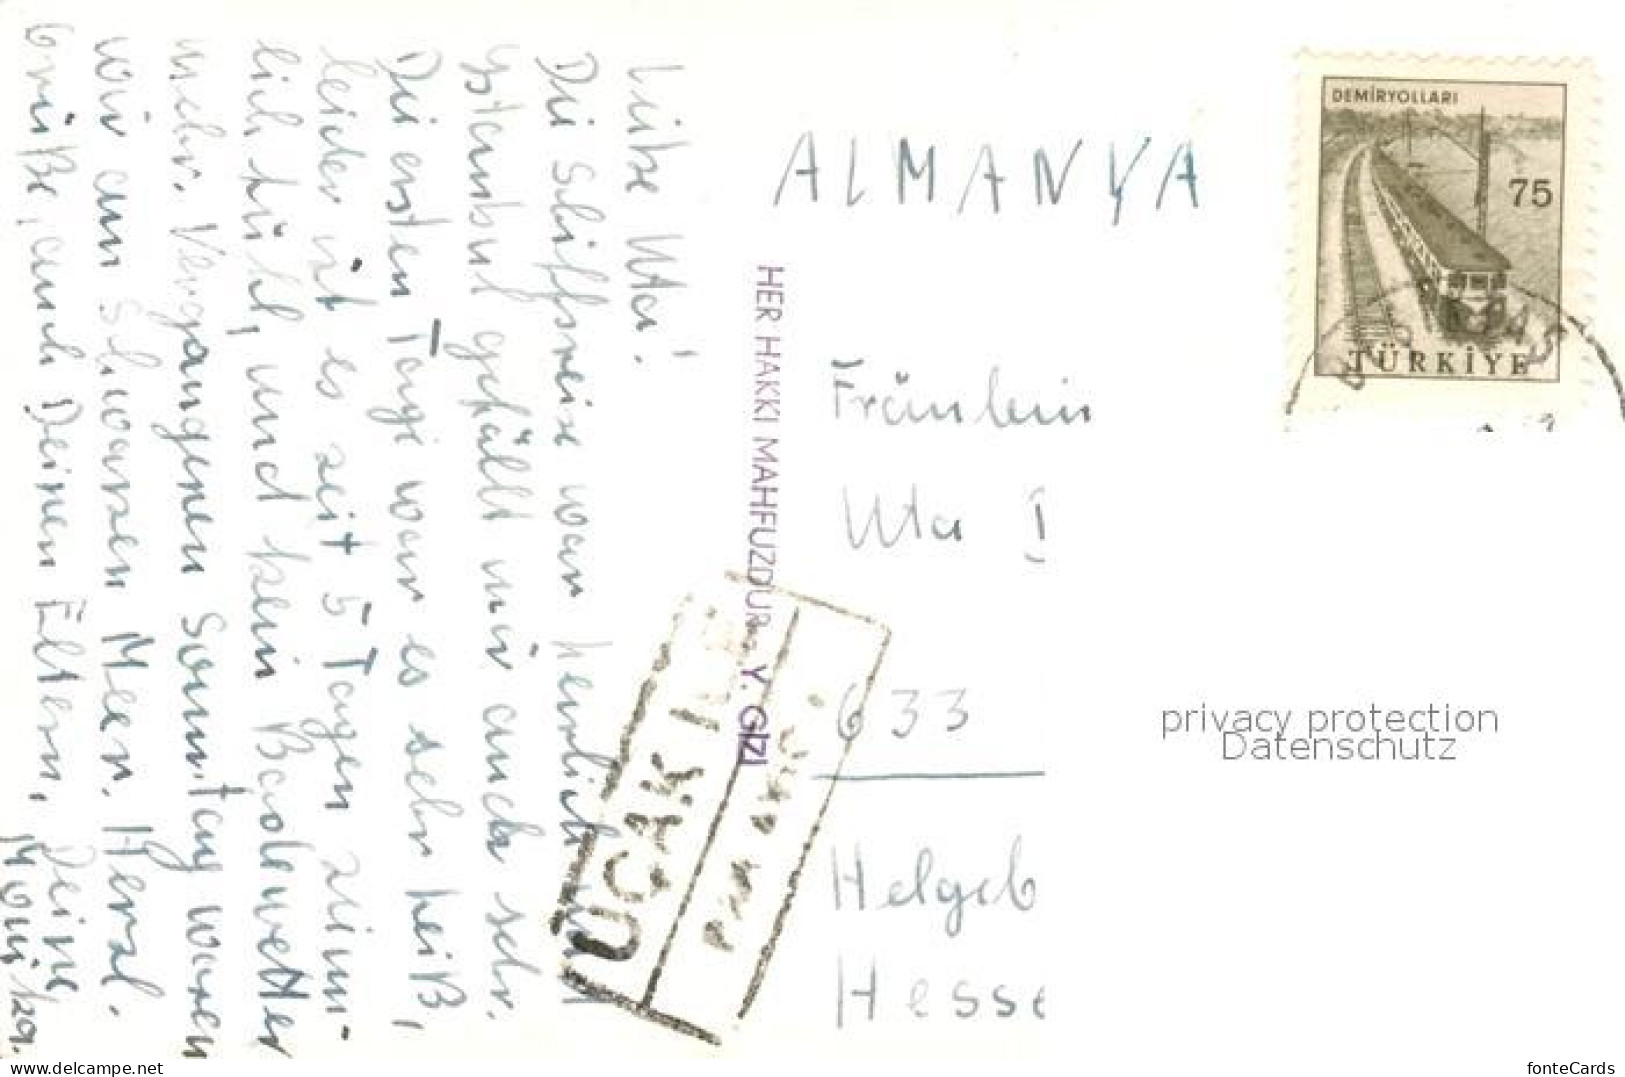 Liebe Uta!
Die Schiffsreise war herrlich und
Istanbul gefällt mir auch sehr.
Die ersten Tage war es sehr heiß,
leider ist es seit 5 Tagen ziem-
lich kühl, und kein Badewetter
mehr. Vergangenen Sonntag waren
wir am Schwarzen Meer. Herzl.
Grüße, auch Deinen Eltern, Deine
HER HAKKI MAHFUZDUR. Y. GIZI
UÇAK İLE
PAR AVION
ALMANYA
Fräulein
Uta
633
Helgeb
Hesse
DEMİRYOLLARI
75
TÜRKİYE
privacy protection
Datenschutz
www.delcampe.net
fonteCards